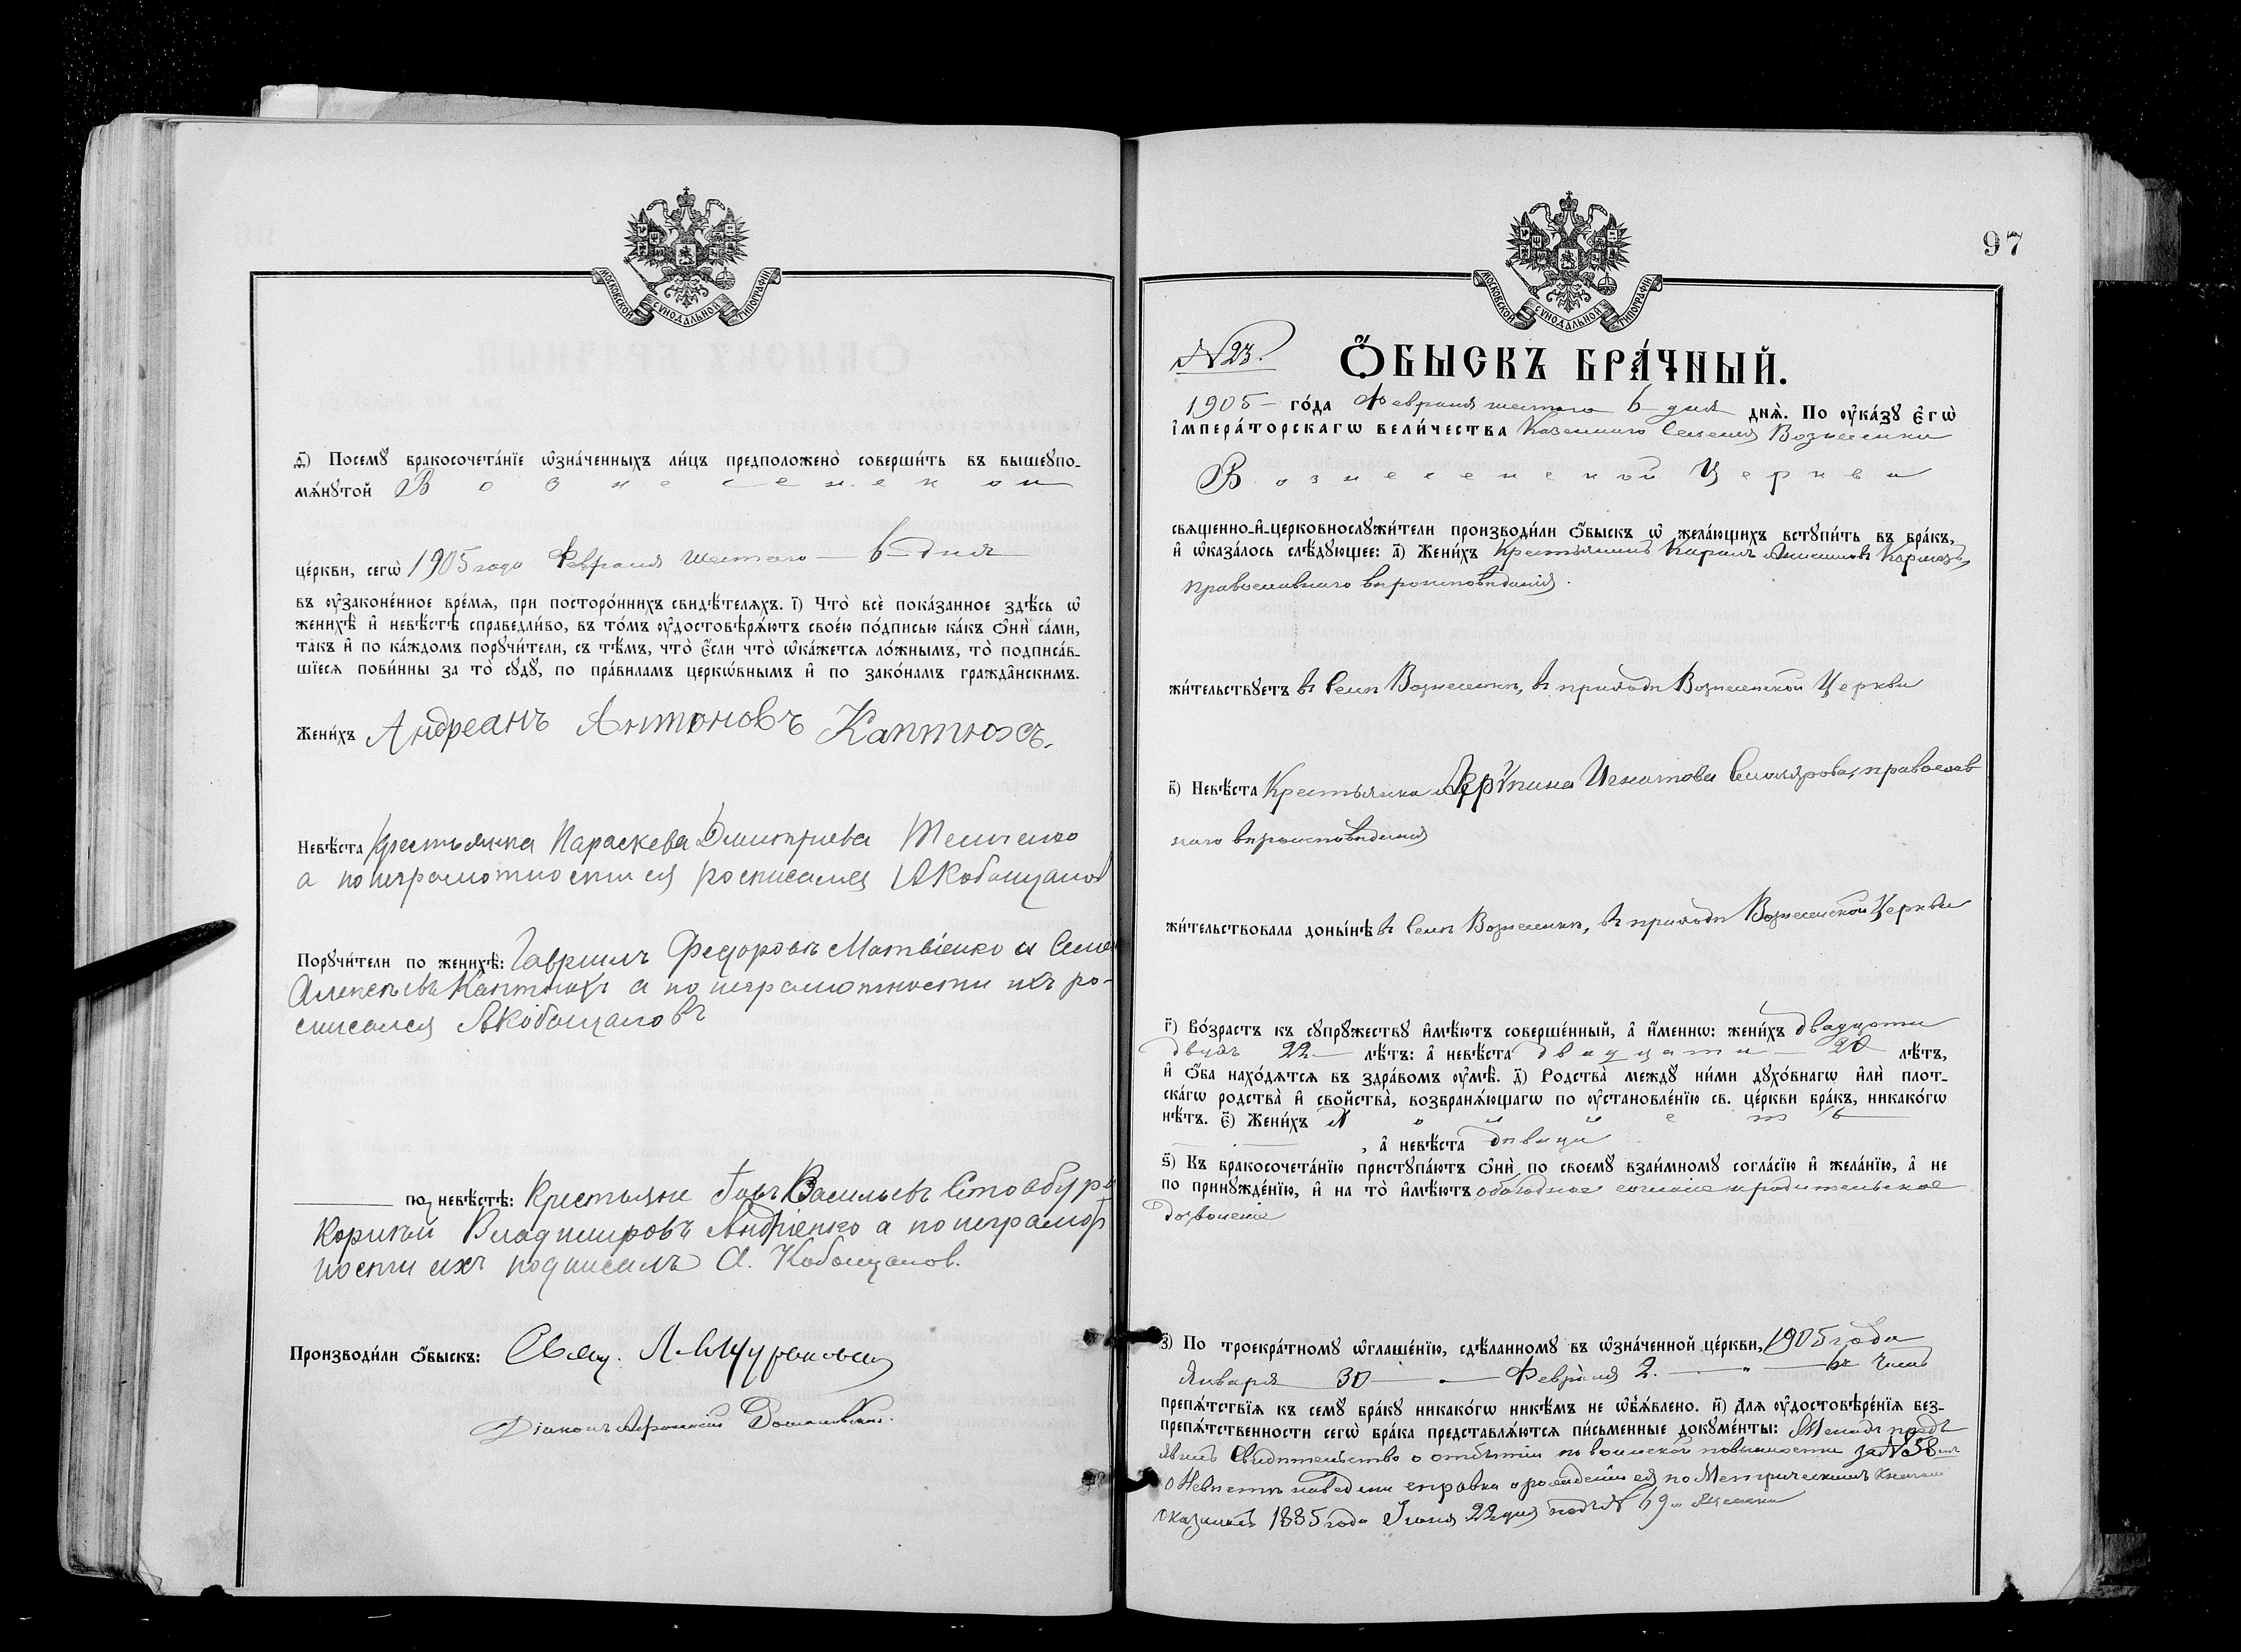 МОСКОВСКОЙ СУНОДАЛЬНОЙ ТИПОГРАФІИ
Посему̀ бракосочета́нїе ѡ҆зна́ченныхъ ли́цъ предположено̀ соверши́ть въ вышеупо-
мѧ́нутой Вознесенской
це́ркви, сегѡ̀ 1905 года Февраля шестаго — 6 дня
въ ᲂу҆зако́ненное вре́мѧ, при посторо́ннихъ свидѣ́телѧхъ. і҃) Что̀ всѐ пока́занное здѣ́сь ѡ҆
женихѣ̀ и҆ невѣ́стѣ справедли́во, въ то́мъ ᲂу҆достовѣрѧ́ютъ свое́ю по́дписью ка́къ ѻ҆нѝ са́ми,
та́къ и҆ по ка́ждомъ поручи́тели, съ тѣ́мъ, что̀ є҆́сли что̀ ѡ҆ка́жетсѧ ло́жнымъ, то̀ подписа́в-
шїесѧ пови́нны за то̀ суду̀, по пра́виламъ церкѡ́внымъ и҆ по зако́намъ гражда̂нскимъ.
Жени́хъ Андреанъ Антоновъ Каптюхъ.
Невѣ́ста Крестьянка Параскева Димитриева
а по неграмотности ея росписался А Кобащанов
Поручи́тели по женихѣ̀: Гавриилъ Федоровъ Матвіенко и
Алексѣевъ Каптюхъ а по неграмотности ихъ ро-
списался А Кобащановъ
по невѣ́стѣ: Крестьяне Васильевъ
Владимировъ Андріенко а по неграмот
ности ихъ подписалъ А. Кобащанов.
Производи́ли ѻ҆́быскъ: Свящ.
Діаконъ
97
МОСКОВСКОЙ СУНОДАЛЬНОЙ ТИПОГРАФІИ
№ 23.
Ѻ҆́БЫСКЪ БРА́ЧНЫЙ.
1905 — го́да Февраля шестаго 6 дня днѧ̀. По ᲂу҆ка́зу є҆гѡ̀
і҆мпера́торскагѡ вели́чества Казеннаго Селенія Вознесенки
Вознесенской Церкви
свѧщенно-и҆-церковнослужи́тели производи́ли ѻ҆́быскъ ѡ҆ жела́ющихъ вступи́ть въ бра́къ,
и҆ ѡ҆каза́лось слѣ́дующее: а҃) Жени́хъ Крестьянинъ
православнаго вѣроисповѣданія.
жи́тельствуетъ въ Селѣ Вознесенкѣ, въ приходѣ Вознесенской Церкви
в҃) Невѣ́ста Крестьянка Игнатова православ
наго вѣроисповѣданія
жи́тельствовала доны́нѣ въ Селѣ Вознесенкѣ, въ приходѣ Вознесенской Церкви
г҃) Во́зрастъ къ супру́жеству и҆мѣ́ютъ соверше́нный, а҆ и҆́меннѡ: жени́хъ двадцати
двухъ 22 — лѣ́тъ: а҆ невѣ́ста двадцати — 20 лѣ́тъ,
и҆ ѻ҆́ба нахо́дѧтсѧ въ здра́вомъ ᲂу҆мѣ̀. д҃) Родства̀ между̀ ни́ми духо́внагѡ и҆лѝ плот-
ска́гѡ родства̀ и҆ сво́йства̀, возбранѧ́ющагѡ по ᲂу҆становле́нїю св. це́ркви бра́къ, никако́гѡ
нѣ́тъ. є҃) Жени́хъ холостъ
, а҆ невѣ́ста дѣвица
ѕ҃) Къ бракосочета́нїю приступа́ютъ ѻ҆нѝ по своему̀ взаи́мному согла́сїю и҆ жела́нїю, а҆ не
по принужде́нїю, и҆ на то̀ и҆мѣ́ютъ обоюдное согласіе и родительское
дозволеніе
з҃) По троекра́тному ѡ҆глаше́нїю, сдѣ́ланному въ ѡ҆зна́ченной це́ркви, 1905 года
Января 30 — Февраля 2. — 6 числъ
препѧ́тствїѧ къ сему̀ бра́ку никако́гѡ никѣ́мъ не ѡ҆б̾ѧ́влено. и҃) Длѧ ᲂу҆достовѣре́нїѧ без-
препѧ́тственности сегѡ̀ бра́ка представлѧ́ютсѧ пи́сьменные докуме́нты: Женихъ предъ
явилъ Свидѣтельство о отбытіи по воинской повинности за № 58
о Невѣстѣ наведена справка о рожденіи ея по Метрическимъ Книгамъ
1885 года Іюня 22 дня подъ № 69